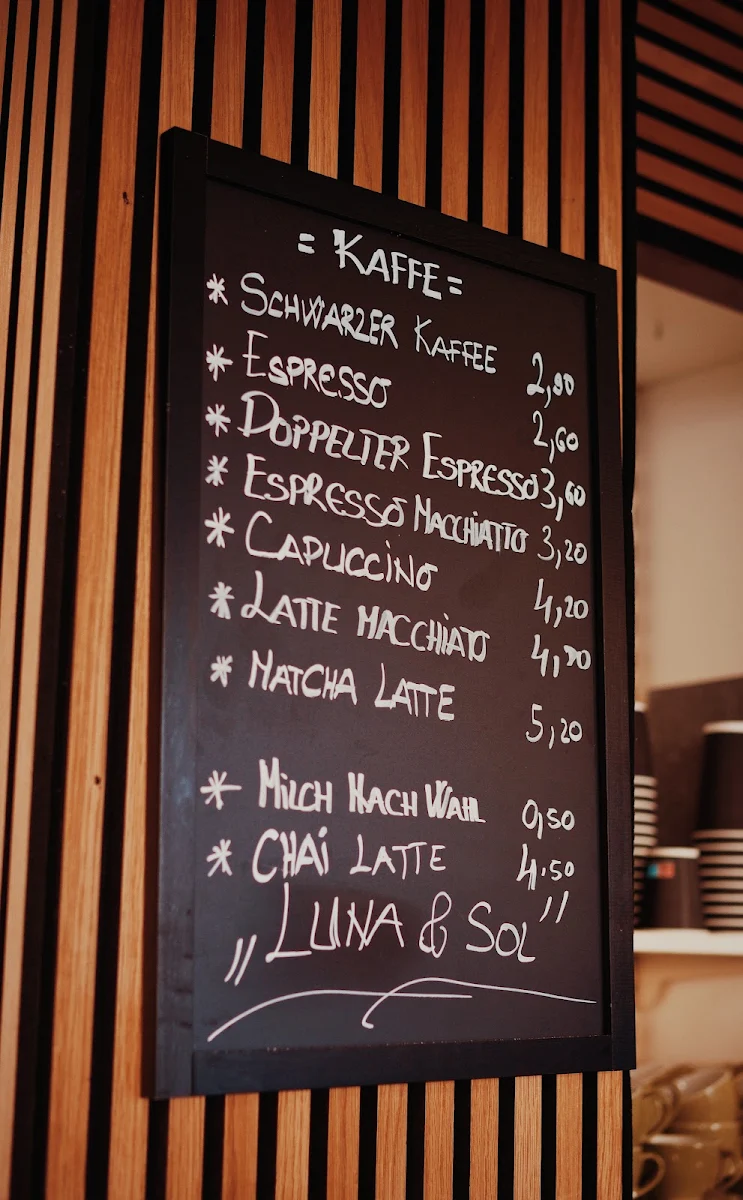 = KAFFE =
* SCHWARZER KAFFEE 2,90
* ESPRESSO 2,60
* DOPPELTER ESPRESSO 3,60
* ESPRESSO MACCHIATTO 3,20
* CAPUCCINO 4,20
* LATTE MACCHIATO 4,90
* MATCHA LATTE 5,20
* MILCH NACH WAHL 0,50
* CHAI LATTE 4.50
„LUNA & SOL”